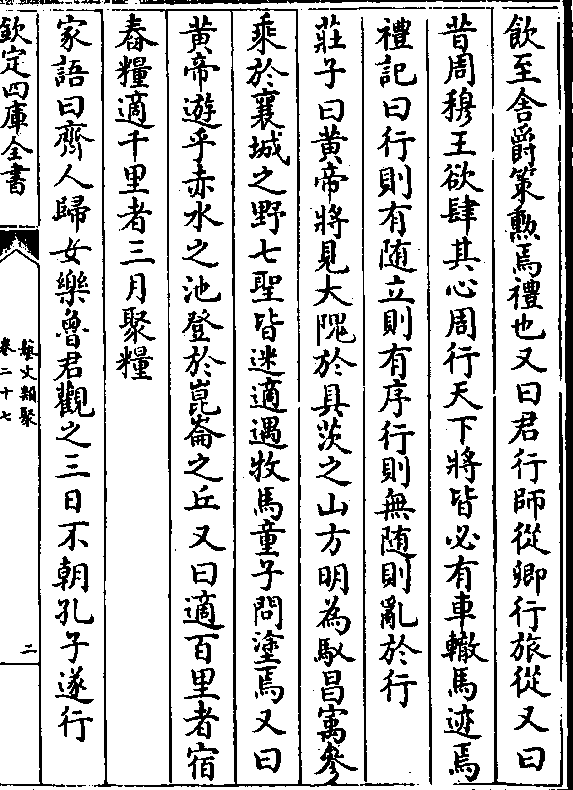 飲至舍爵策勲焉禮也又曰君行師從卿行旅從又曰
昔周穆王欲肆其心周行天下將皆必有車轍馬迹焉
禮記曰行則有随立則有序行則無随則亂於行
莊子曰黄帝將見大隗於具茨之山方明為馭昌寓參
乘於襄城之野七聖皆迷適遇牧馬童子問塗焉又曰
黄帝遊乎赤水之池登於崑崙之丘又曰適百里者宿
舂糧適千里者三月聚糧
家語曰齊人歸女樂魯君觀之三日不朝孔子遂行
欽定四庫全書
藝文類聚
卷二十七
二